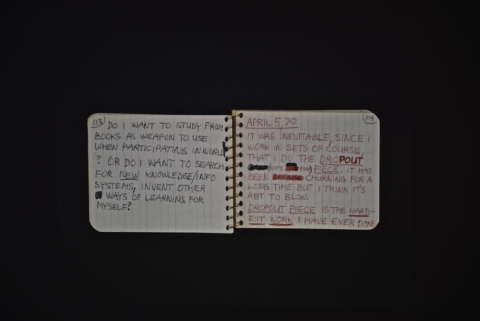 113
DO I WANT TO STUDY FROM
BOOKS AS WEAPON TO USE
WHEN PARTICIPATING IN WORLD
? OR DO I WANT TO SEARCH
FOR NEW KNOWLEDGE/INFO
SYSTEMS, INVENT OTHER
WAYS OF LEARNING FOR
MYSELF?
114
APRIL 5, 70
IT WAS INEVITABLE, SINCE I
WORK IN SETS OF COURSE,
THAT I DO THE DROPOUT
PIECE. IT HAS
BEEN CHURNING FOR A
LONG TIME BUT I THINK IT'S
ABT TO BLOW.
DROPOUT PIECE IS THE HARD-
EST WORK I HAVE EVER DONE